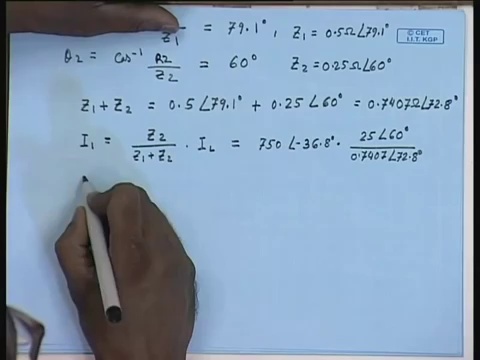 Z₁ = 79.1°, Z₁ = 0.5Ω∠79.1°
© CET
I.I.T. KGP
θ₂ = Cos⁻¹ R2/Z₂ = 60° Z₂ = 0.25Ω∠60°
Z₁ + Z₂ = 0.5∠79.1° + 0.25∠60° = 0.7407Ω∠72.8°
I₁ = Z₂/(Z₁+Z₂) · I_L = 750∠-36.8° · 25∠60°/0.7407∠72.8°